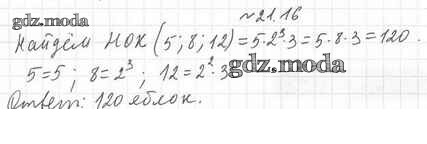 №21.16
gdz.moda
Найдём НОК (5; 8; 12) = 5·2³·3 = 5·8·3 = 120.
5 = 5; 8 = 2³; 12 = 2²·3 gdz.moda
Ответ: 120 яблок.